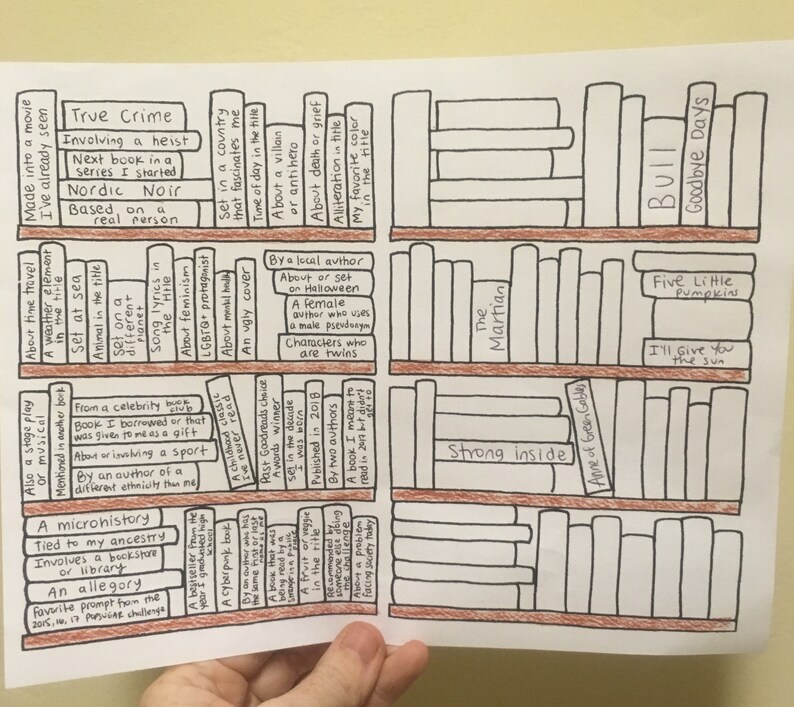 Made into a movie
I've already seen
True Crime
Involving a heist
Next book in a
series I started
Nordic Noir
Based on a
real person
Set in a country
that fascinates me
Time of day in the title
About a villain
or antihero
About death or grief
Alliteration in title
My favorite color
in the title
About time travel
A weather element
in the title
Set at sea
Animal in the title
Set on a
different
planet
Song lyrics in
the title
About feminism
LGBTQ+ protagonist
About mental health
An ugly cover
By a local author
About or set
on Halloween
A female
author who uses
a male pseudonym
Characters who
are twins
Also a stage play
or musical
Mentioned in another book
From a celebrity book
club
Book I borrowed or that
was given to me as a gift
About or involving a sport
By an author of a
different ethnicity than me
A childhood classic
I've never read
Past Goodreads Choice
Awards winner
Set in the decade
I was born
Published in 2018
By two authors
A book I meant to
read in 2017 but didn't
get to
A microhistory
Tied to my ancestry
Involves a bookstore
or library
An allegory
Favorite prompt from the
2015, 16, 17 POPSUGAR challenge
A bestseller from the
year I graduated high
school
A cyberpunk book
By an author who has
the same first or last
name as me
A book that was
being read by a
stranger in a public
place
A fruit or veggie
in the title
Recommended by
someone else doing
the challenge
About a problem
facing society today
Bull
Goodbye Days
The
Martian
Five Little
Pumpkins
I'll Give You
the sun
Strong inside
Anne of Green Gables